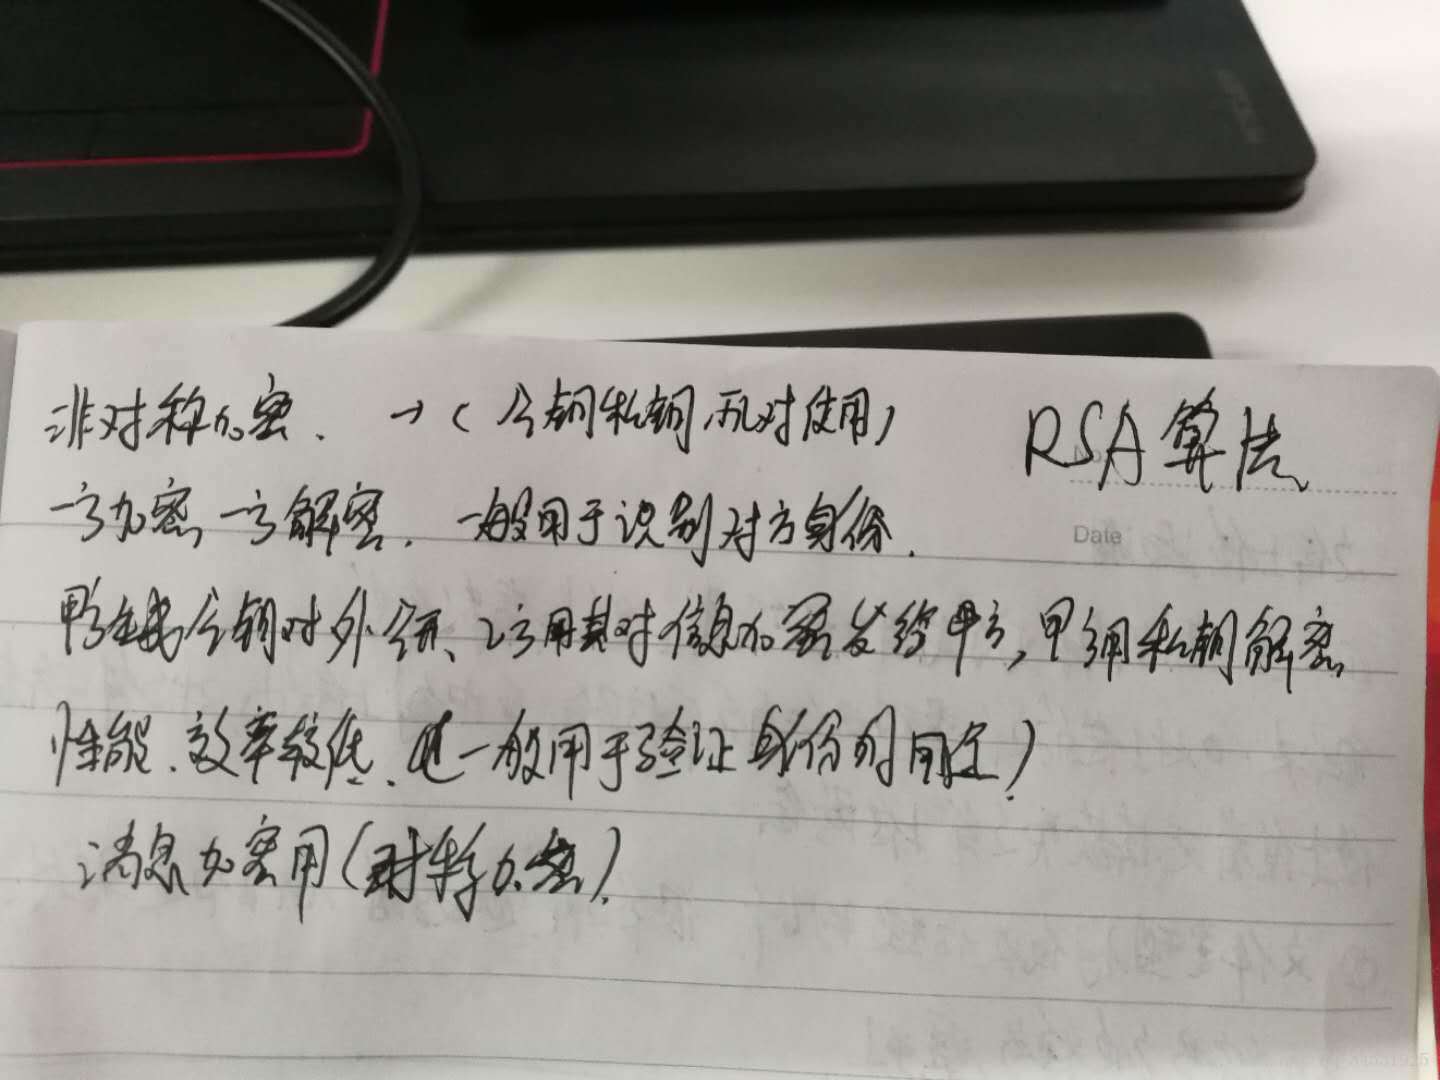 非对称加密. →(公钥私钥配对使用) RSA算法
一方加密 一方解密. 一般用于识别对方身份.
Date
甲方生成公钥对外公开、乙方用其对信息加密发给甲方,甲方用私钥解密
性能.效率较低.也一般用于验证身份时用它)
消息加密用(对称加密).